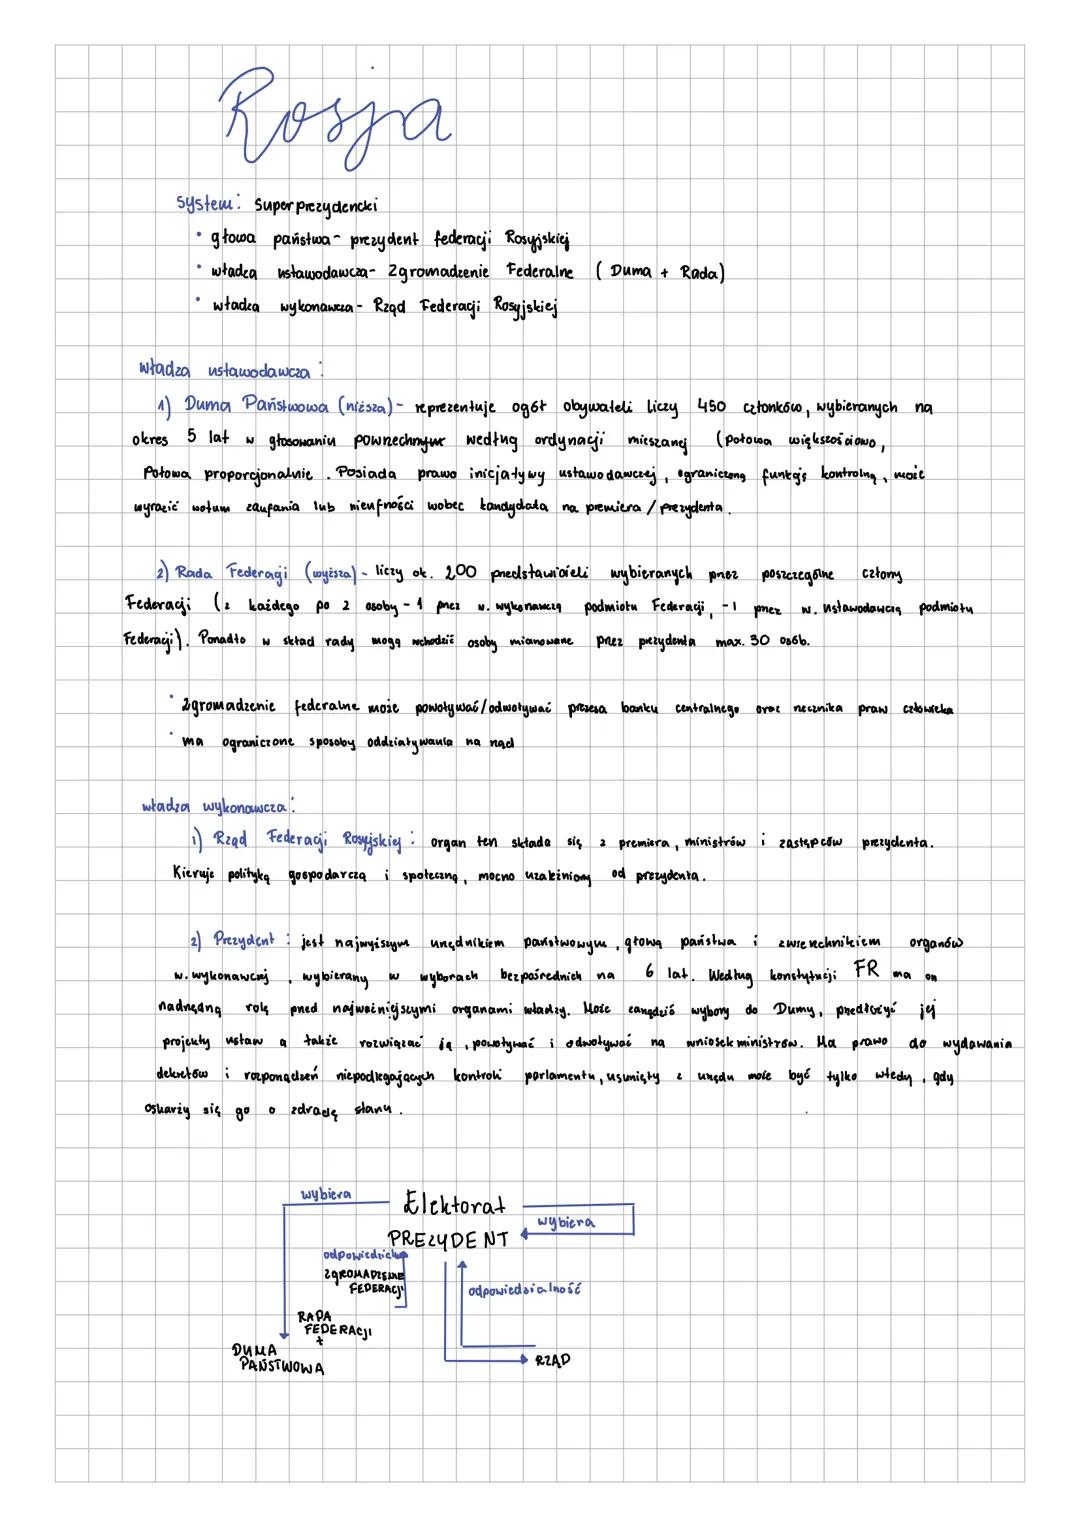 Rosja
system: superprezydencki
• głowa państwa - prezydent federacji Rosyjskiej
• władza ustawodawcza - Zgromadzenie Federalne ( Duma + Rada)
• władza wykonawcza - Rząd Federacji Rosyjskiej
władza ustawodawcza :
1) Duma Państwowa (niższa) - reprezentuje ogół obywateli liczy 450 członków, wybieranych na
okres 5 lat w głosowaniu powszechnym według ordynacji mieszanej (połowa większościowo,
połowa proporcjonalnie . Posiada prawo inicjatywy ustawodawczej, ograniczoną funkcję kontrolną, może
wyrazić wotum zaufania lub nieufności wobec kandydata na premiera / prezydenta.
2) Rada Federacji (wyższa) - liczy ok. 200 przedstawicieli wybieranych przez poszczególne człony
Federacji (z każdego po 2 osoby - 1 przez w. wykonawczą podmiotu Federacji, -1 przez w. ustawodawczą podmiotu
Federacji). Ponadto w skład rady mogą wchodzić osoby mianowane przez prezydenta max. 30 osób.
• Zgromadzenie federalne może powoływać/odwoływać prezesa banku centralnego oraz rzecznika praw człowieka
• ma ograniczone sposoby oddziaływania na rząd
władza wykonawcza:
1) Rząd Federacji Rosyjskiej : organ ten składa się z premiera, ministrów i zastępców prezydenta.
Kieruje polityką gospodarczą i społeczną, mocno uzależniony od prezydenta.
2) Prezydent : jest najwyższym urzędnikiem państwowym, głową państwa i zwierzchnikiem organów
w. wykonawczej, wybierany w wyborach bezpośrednich na 6 lat. Według konstytucji FR ma on
nadrzędną rolę przed najważniejszymi organami władzy. Może zarządzić wybory do Dumy, przedłożyć jej
projekty ustaw a także rozwiązać ją, powoływać i odwoływać na wniosek ministrów. Ma prawo do wydawania
dekretów i rozporządzeń niepodlegających kontroli parlamentu, usunięty z urzędu może być tylko wtedy, gdy
oskarży się go o zdradę stanu.
wybiera
Elektorat
wybiera
PREZYDENT
ZGROMADZENIE
FEDERACJI
odpowiedzialność
RADA
FEDERACJI
+
DUMA
PAŃSTWOWA
RZĄD